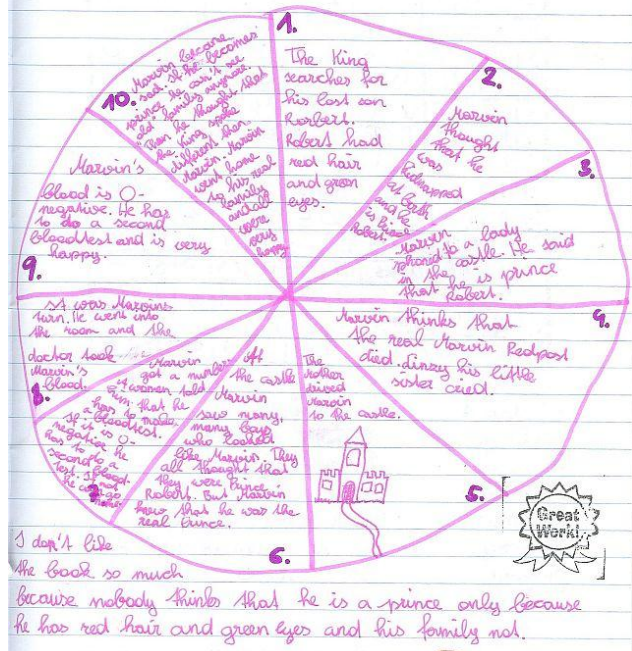 1.
The King
searches for
his lost son
Robert.
Robert had
red hair
and green
eyes.
2.
Marvin
thought
that he
was
kidnapped
at birth
and he
is Prince
Robert.
3.
Marvin
phoned to a lady
in the castle. He said
that he is prince
Robert.
4.
Marvin thinks that
the real Marvin Redpost
died. Jinzy his little
sister cried.
5.
The
mother
drived
Marvin
to the castle.
6.
At
the castle
Marvin
saw many,
many boys
who looked
like Marvin. They
all thought that
they were prince
Robert. But Marvin
knew that he was the
real prince.
7.
Marvin
got a number.
A women told
him that he
has to make
a bloodtest.
If it is O-
negative he
has to do a
second blood-
test. If not
he can go
home.
8.
It was Marvins
turn. He went into
the room and the
doctor took
Marvin's
blood.
9.
Marvin's
blood is O-
negative. He has
to do a second
bloodtest and is very
happy.
10.
Marvin became
sad. If he becomes
prince he can't see
"old" family anymore.
Then he thought that
the king spoke
different then
Marvin. Marvin
went home
to his real
family
and all
were
very
happy.
Great
Work!
I don't like
the book so much
because nobody thinks that he is a prince only because
he has red hair and green eyes and his family not.